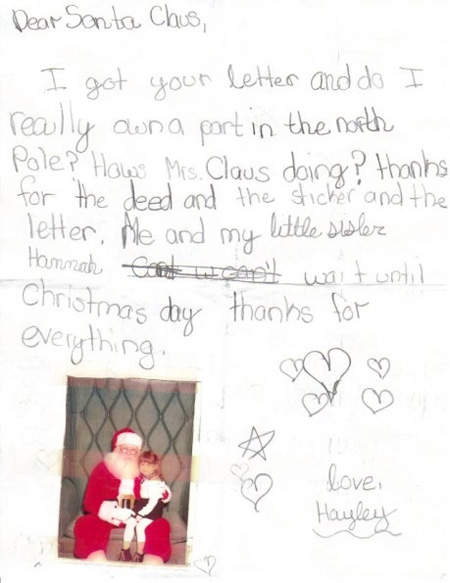 Dear Santa Claus,
I got your letter and do I
really own a part in the north
Pole? Hows Mrs. Claus doing? thanks
for the deed and the sticker and the
letter. Me and my little sister
Hannah wait until
Christmas day thanks for
everything.
love,
Hayley